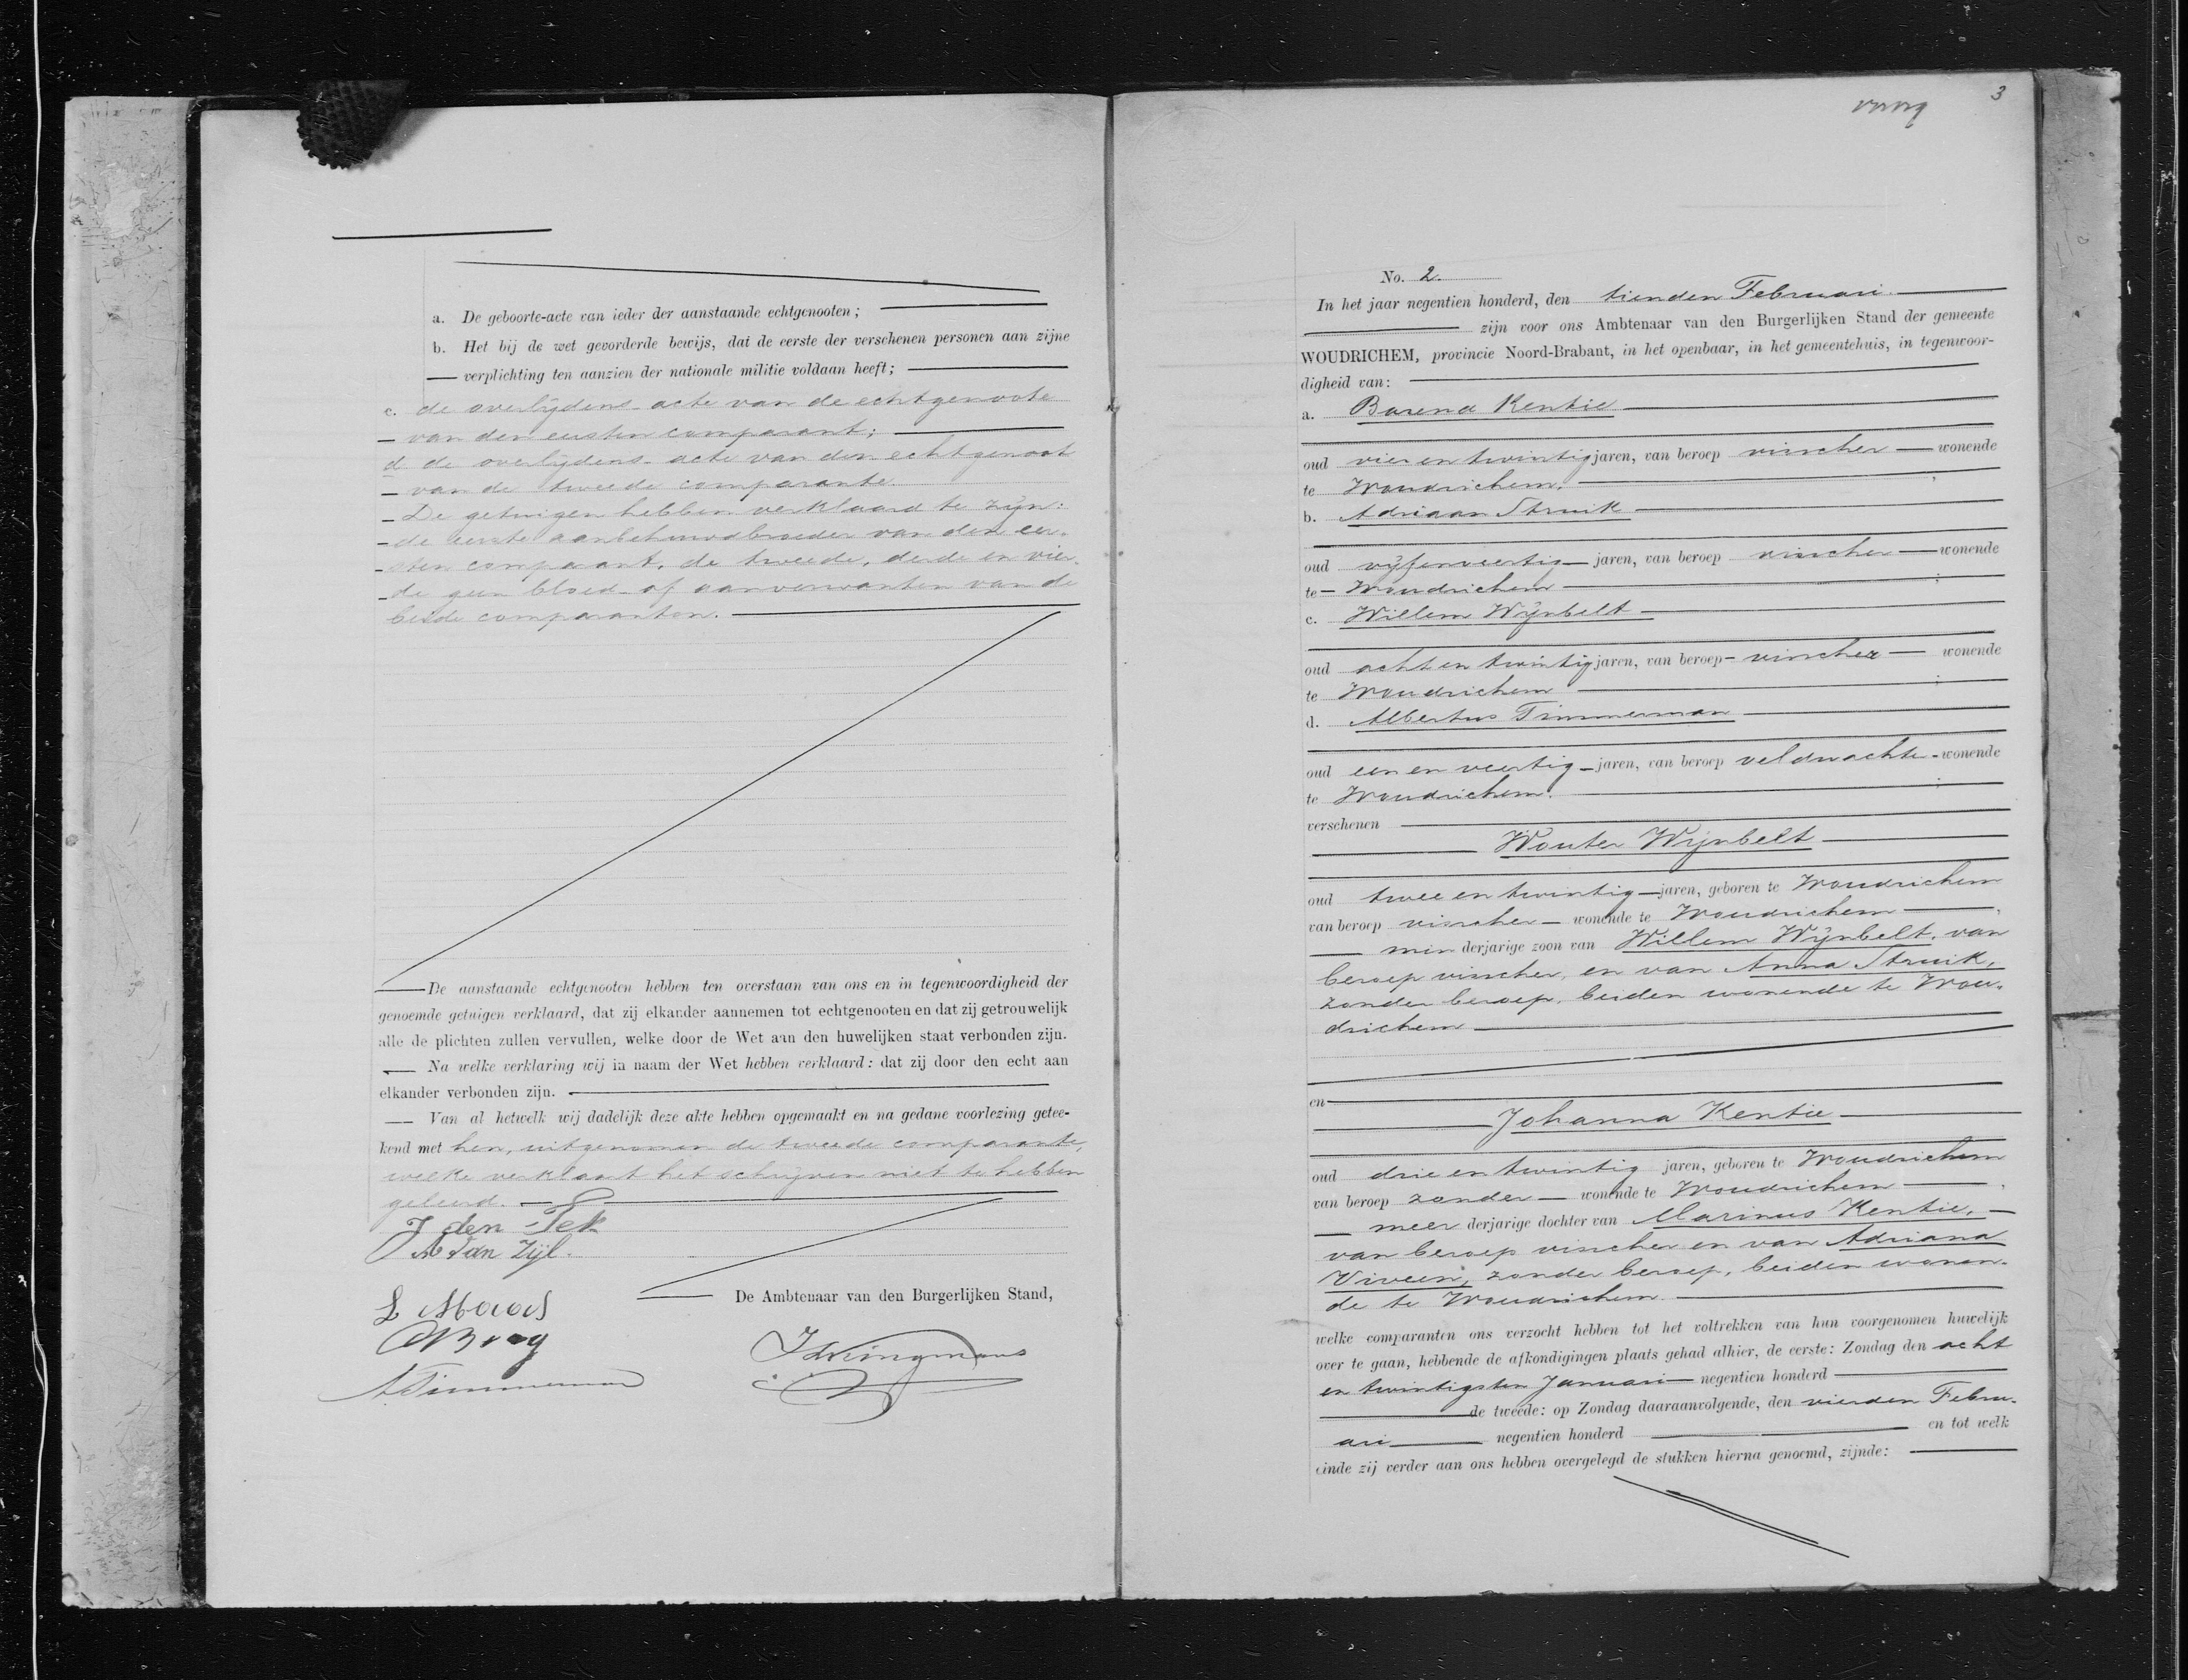 a. De geboorte-acte van ieder der aanstaande echtgenooten;
b. Het bij de wet gevorderde bewijs, dat de eerste der verschenen personen aan zijne
verplichting ten aanzien der nationale militie voldaan heeft;
c. de overlijdens-acte van de echtgenoote
van den eersten comparant;
d de overlijdens-acte van den echtgenoot
van de tweede comparante.
De getuigen hebben verklaard te zijn:
de eerste aanbehuwdbroeder van den eer-
sten comparant, de tweede, derde en vier-
de geen bloed- of aanverwanten van de
beide comparanten.
De aanstaande echtgenooten hebben ten overstaan van ons en in tegenwoordigheid der
genoemde getuigen verklaard, dat zij elkander aannemen tot echtgenooten en dat zij getrouwelijk
alle de plichten zullen vervullen, welke door de Wet aan den huwelijken staat verbonden zijn.
Na welke verklaring wij in naam der Wet hebben verklaard: dat zij door den echt aan
elkander verbonden zijn.
Van al hetwelk wij dadelijk deze akte hebben opgemaakt en na gedane voorlezing getee-
kend met hen, uitgenomen de tweede comparante,
welke verklaart het schrijven niet te hebben
geleerd.
J den Pek
A Van Zijl.
De Ambtenaar van den Burgerlijken Stand,
A Timmerman
3
No. 2.
In het jaar negentien honderd, den tienden Februari
zijn voor ons Ambtenaar van den Burgerlijken Stand der gemeente
WOUDRICHEM, provincie Noord-Brabant, in het openbaar, in het gemeentehuis, in tegenwoor-
digheid van:
a. Barend Kentie
oud vier en twintig jaren, van beroep visscher wonende
te Woudrichem;
b. Adriaan Struik
oud vijfenveertig jaren, van beroep visscher wonende
te Woudrichem;
c. Willem Wijnbelt
oud acht en twintig jaren, van beroep visscher wonende
te Woudrichem;
d. Albertus Timmerman
oud een en veertig jaren, van beroep veldwachter wonende
te Woudrichem;
verschenen
Wouter Wijnbelt
oud twee en twintig jaren, geboren te Woudrichem
van beroep visscher wonende te Woudrichem,
min derjarige zoon van Willem Wijnbelt, van
beroep visscher, en van Anna Struik,
zonder beroep, beiden wonende te Wou-
drichem
en
Johanna Kentie
oud drie en twintig jaren, geboren te Woudrichem
van beroep zonder wonende te Woudrichem,
meer derjarige dochter van Marinus Kentie,
van beroep visscher en van Adriana
Viveen, zonder beroep, beiden wonen-
de te Woudrichem.
welke comparanten ons verzocht hebben tot het voltrekken van hun voorgenomen huwelijk
over te gaan, hebbende de afkondigingen plaats gehad alhier, de eerste: Zondag den acht
en twintigsten Januari negentien honderd
de tweede: op Zondag daaraanvolgende, den vierden Febru-
ari negentien honderd en tot welk
einde zij verder aan ons hebben overgelegd de stukken hierna genoemd, zijnde: